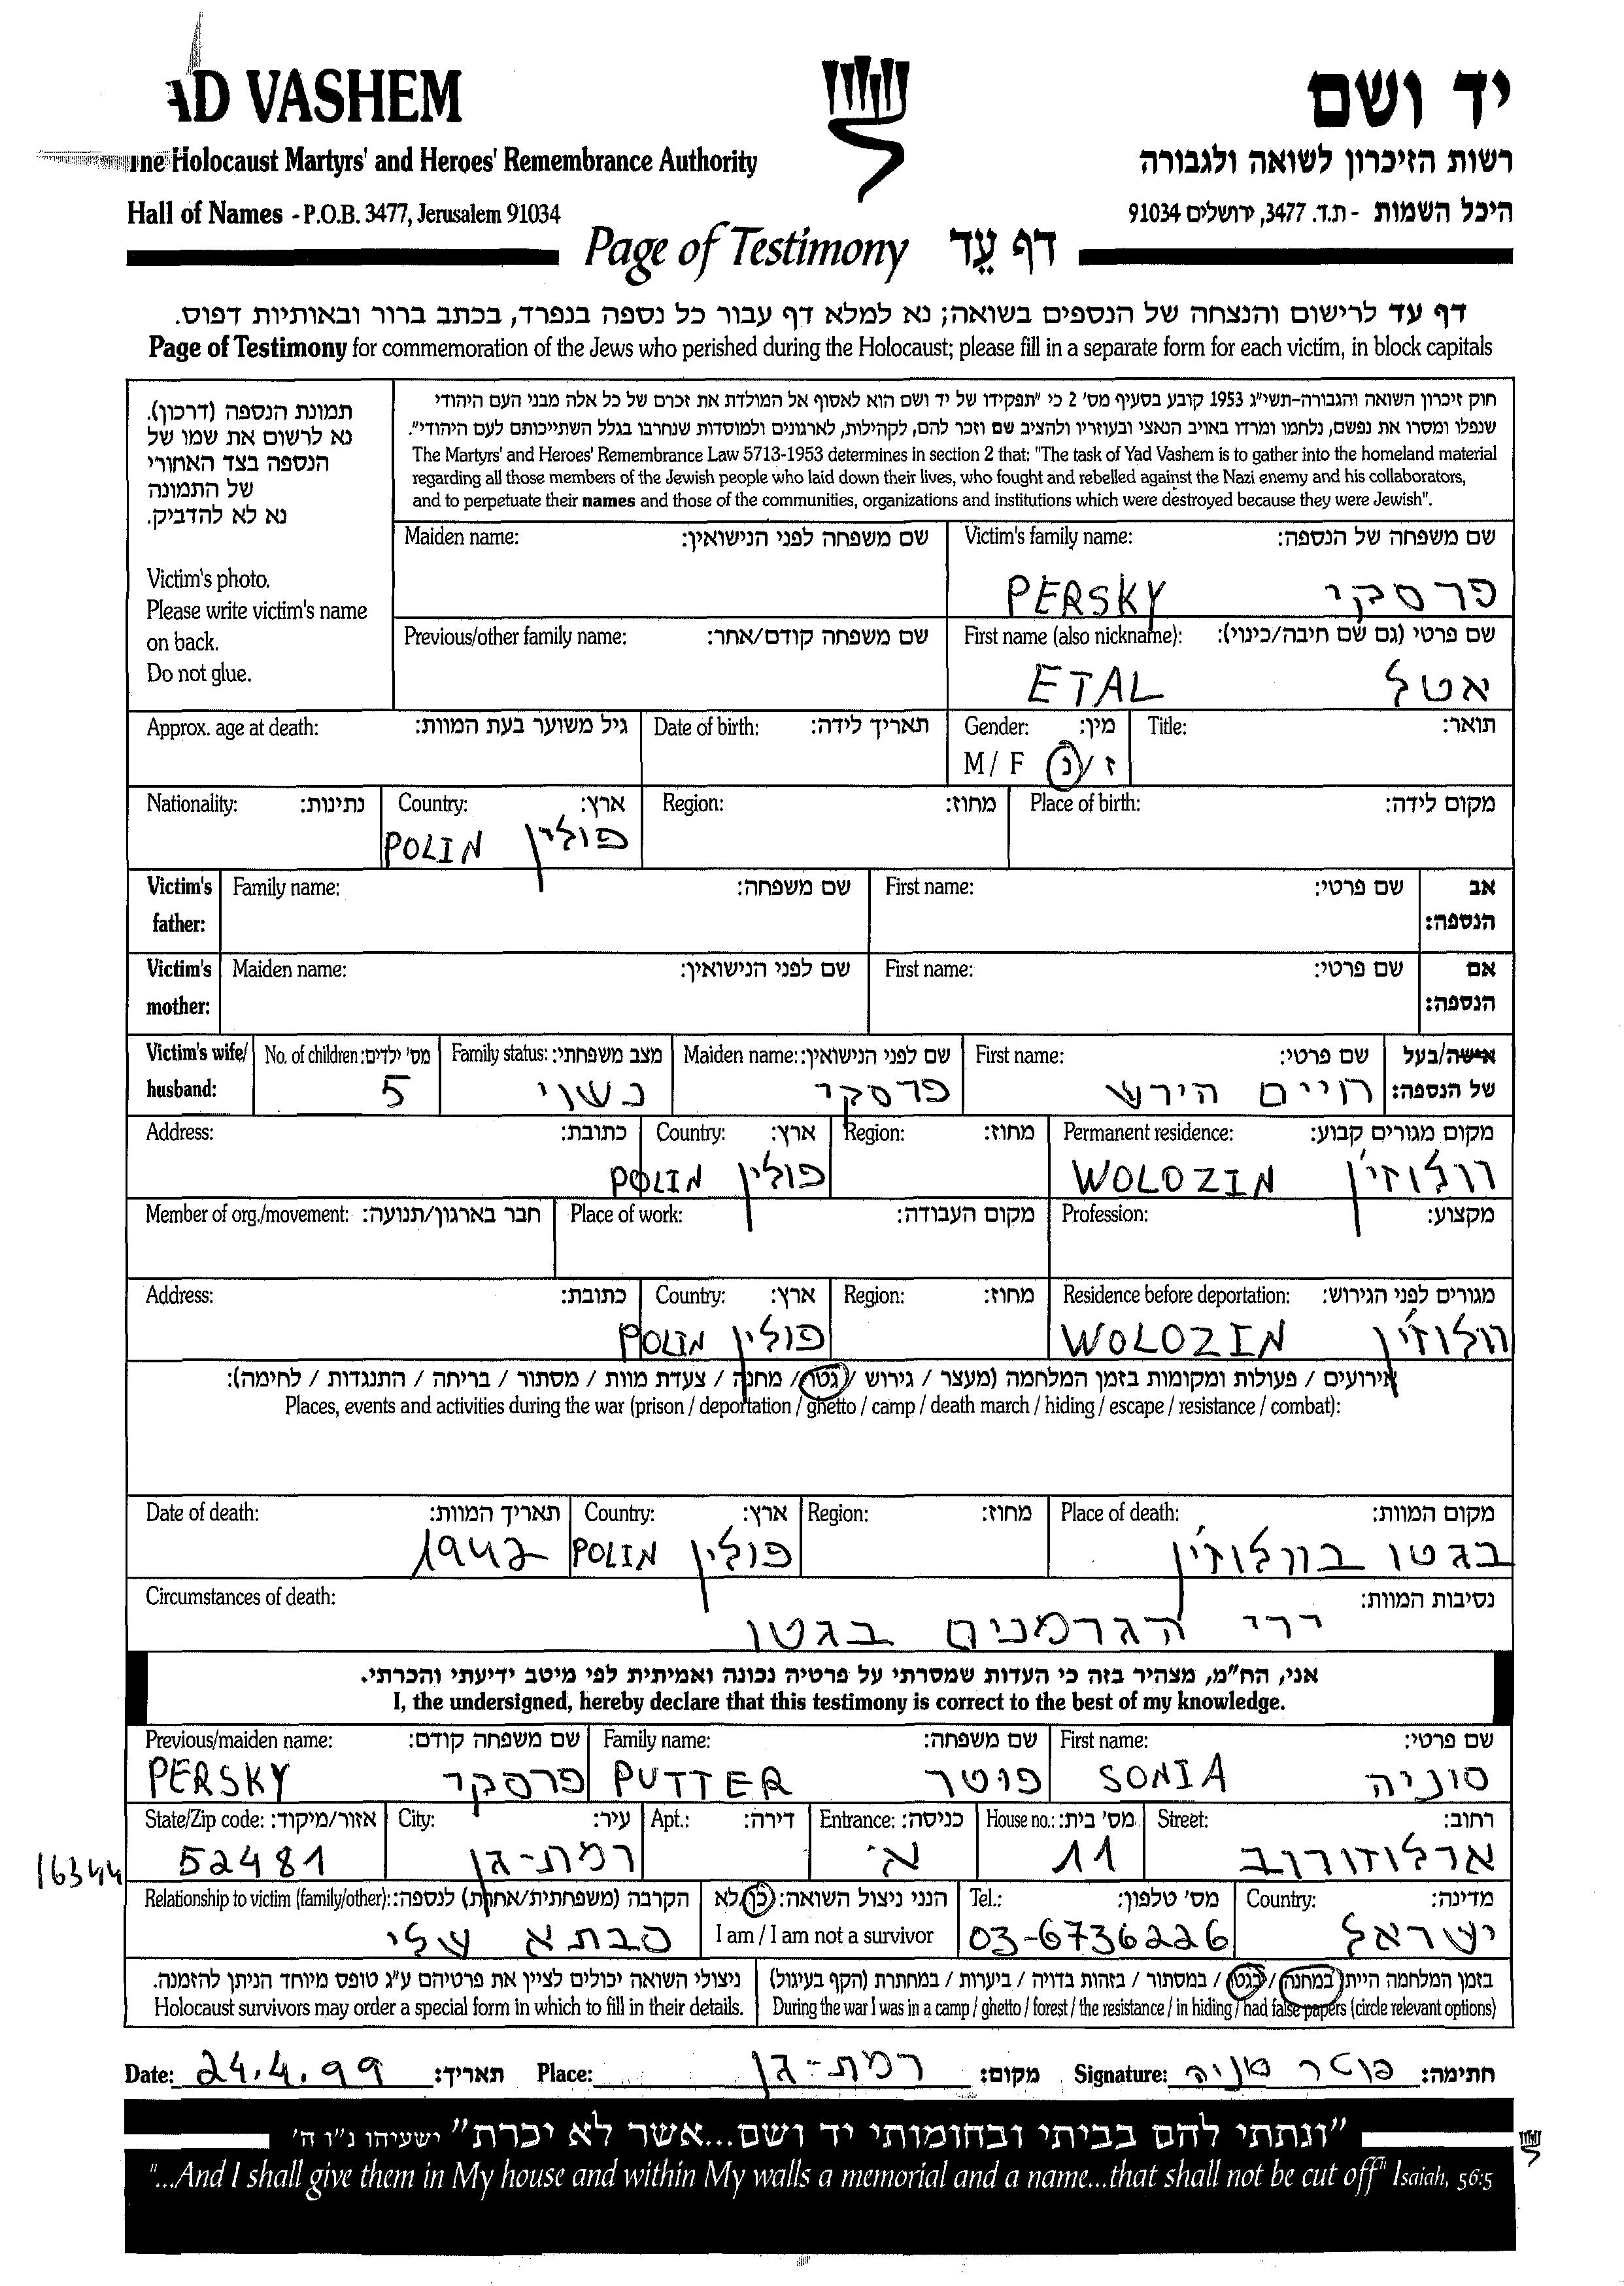 AD VASHEM יד ושם
The Holocaust Martyrs' and Heroes' Remembrance Authority רשות הזיכרון לשואה ולגבורה
Hall of Names - P.O.B. 3477, Jerusalem 91034 היכל השמות - ת.ד. 3477, ירושלים 91034
Page of Testimony דף עֵד
דף עד לרישום והנצחה של הנספים בשואה; נא למלא דף עבור כל נספה בנפרד, בכתב ברור ובאותיות דפוס.
Page of Testimony for commemoration of the Jews who perished during the Holocaust; please fill in a separate form for each victim, in block capitals
תמונת הנספה (דרכון).
נא לרשום את שמו של
הנספה בצד האחורי
של התמונה
נא לא להדביק.
Victim's photo.
Please write victim's name
on back.
Do not glue.
חוק זיכרון השואה והגבורה-תשי"ג 1953 קובע בסעיף מס' 2 כי "תפקידו של יד ושם הוא לאסוף אל המולדת את זכרם של כל אלה מבני העם היהודי
שנפלו ומסרו את נפשם, נלחמו ומרדו באויב הנאצי ובעוזריו ולהציב שם וזכר להם, לקהילות, לארגונים ולמוסדות שנחרבו בגלל השתייכותם לעם היהודי".
The Martyrs' and Heroes' Remembrance Law 5713-1953 determines in section 2 that: "The task of Yad Vashem is to gather into the homeland material
regarding all those members of the Jewish people who laid down their lives, who fought and rebelled against the Nazi enemy and his collaborators,
and to perpetuate their names and those of the communities, organizations and institutions which were destroyed because they were Jewish".
Maiden name: שם משפחה לפני הנישואין: Victim's family name: שם משפחה של הנספה:
PERSKY פרסקי
Previous/other family name: שם משפחה קודם/אחר: First name (also nickname): שם פרטי (גם שם חיבה/כינוי):
ETAL אטל
Approx. age at death: גיל משוער בעת המוות: Date of birth: תאריך לידה: Gender: מין: Title: תואר:
M / F ז / נ
Nationality: נתינות: Country: ארץ: Region: מחוז: Place of birth: מקום לידה:
POLIN פולין
Victim's father: Family name: שם משפחה: First name: שם פרטי: אב הנספה:
Victim's mother: Maiden name: שם לפני הנישואין: First name: שם פרטי: אם הנספה:
Victim's wife/ husband: No. of children: מס' ילדים: Family status: מצב משפחתי: Maiden name: שם לפני הנישואין: First name: שם פרטי: אישה/בעל של הנספה:
5 נשוי פרסקי חיים הירש
Address: כתובת: Country: ארץ: Region: מחוז: Permanent residence: מקום מגורים קבוע:
POLIN פולין WOLOZIN וולוזי'ן
Member of org./movement: חבר בארגון/תנועה: Place of work: מקום העבודה: Profession: מקצוע:
Address: כתובת: Country: ארץ: Region: מחוז: Residence before deportation: מגורים לפני הגירוש:
POLIN פולין WOLOZIN וולוז'ין
אירועים / פעולות ומקומות בזמן המלחמה (מעצר / גירוש / גטו / מחנה / צעדת מוות / מסתור / בריחה / התנגדות / לחימה):
Places, events and activities during the war (prison / deportation / ghetto / camp / death march / hiding / escape / resistance / combat):
Date of death: תאריך המוות: Country: ארץ: Region: מחוז: Place of death: מקום המוות:
1942 POLIN פולין בגטו בוולוז'ין
Circumstances of death: נסיבות המוות:
ירי הגרמנים בגטו
אני, הח"מ, מצהיר בזה כי העדות שמסרתי על פרטיה נכונה ואמיתית לפי מיטב ידיעתי והכרתי.
I, the undersigned, hereby declare that this testimony is correct to the best of my knowledge.
Previous/maiden name: שם משפחה קודם: Family name: שם משפחה: First name: שם פרטי:
PERSKY פרסקי PUTTER פוטר SONIA סוניה
State/Zip code: אזור/מיקוד: City: עיר: Apt.: דירה: Entrance: כניסה: House no.: מס' בית: Street: רחוב:
16344 52481 רמת-גן א' 11 ארלוזורוב
Relationship to victim (family/other): הקרבה (משפחתית/אחרת) לנספה: הנני ניצול השואה: כן/לא Tel.: מס' טלפון: Country: מדינה:
סבתא שלי I am / I am not a survivor 03-6736226 ישראל
ניצולי השואה יכולים לציין את פרטיהם ע"ג טופס מיוחד הניתן להזמנה. בזמן המלחמה הייתי במחנה / בגטו / במסתור / בזהות בדויה / ביערות / במחתרת (הקף בעיגול)
Holocaust survivors may order a special form in which to fill in their details. During the war I was in a camp / ghetto / forest / the resistance / in hiding / had false papers (circle relevant options)
Date: 24.4.99 תאריך: Place: רמת-גן מקום: Signature: פוטר סוניה חתימה:
"ונתתי להם בביתי ובחומותי יד ושם...אשר לא יכרת" ישעיהו נ"ו ה'
"...And I shall give them in My house and within My walls a memorial and a name...that shall not be cut off" Isaiah, 56:5